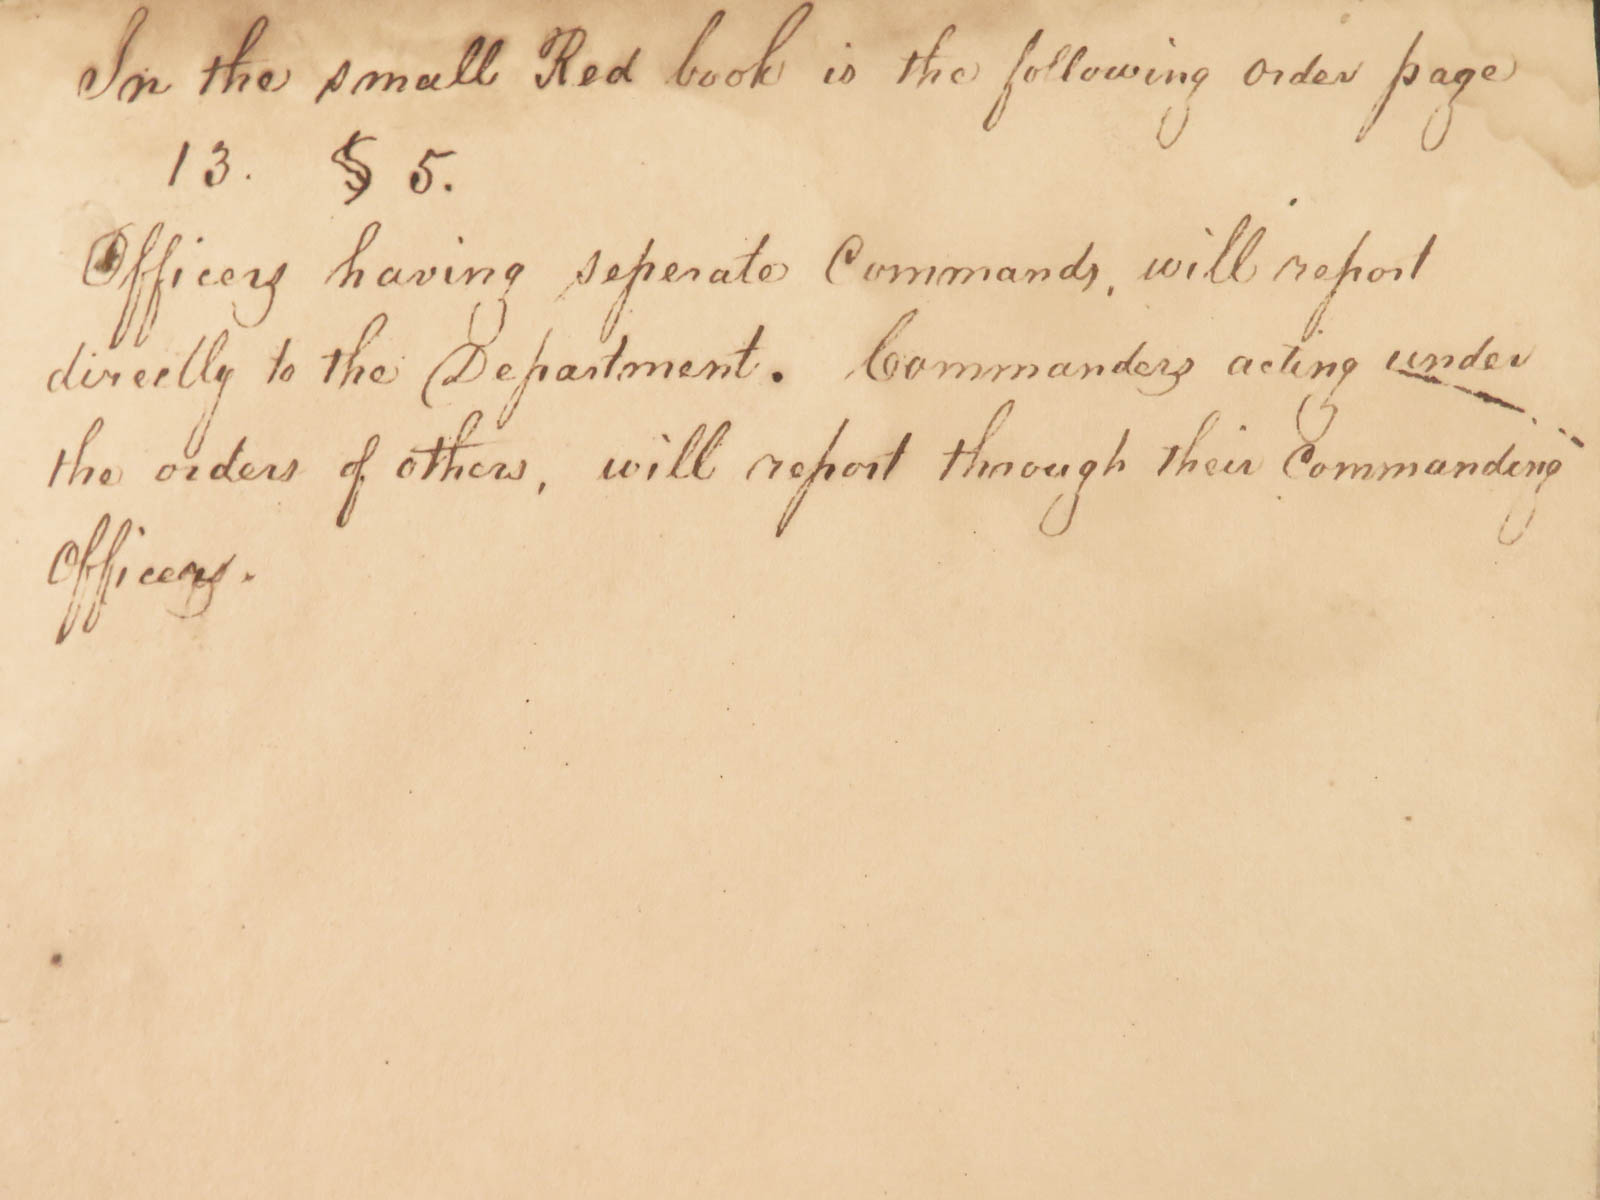 In the small Red book is the following order page
13. § 5.
Officers having seperate Commands, will report
directly to the Department. Commanders acting under
the orders of others, will report through their Commanding
Officers.